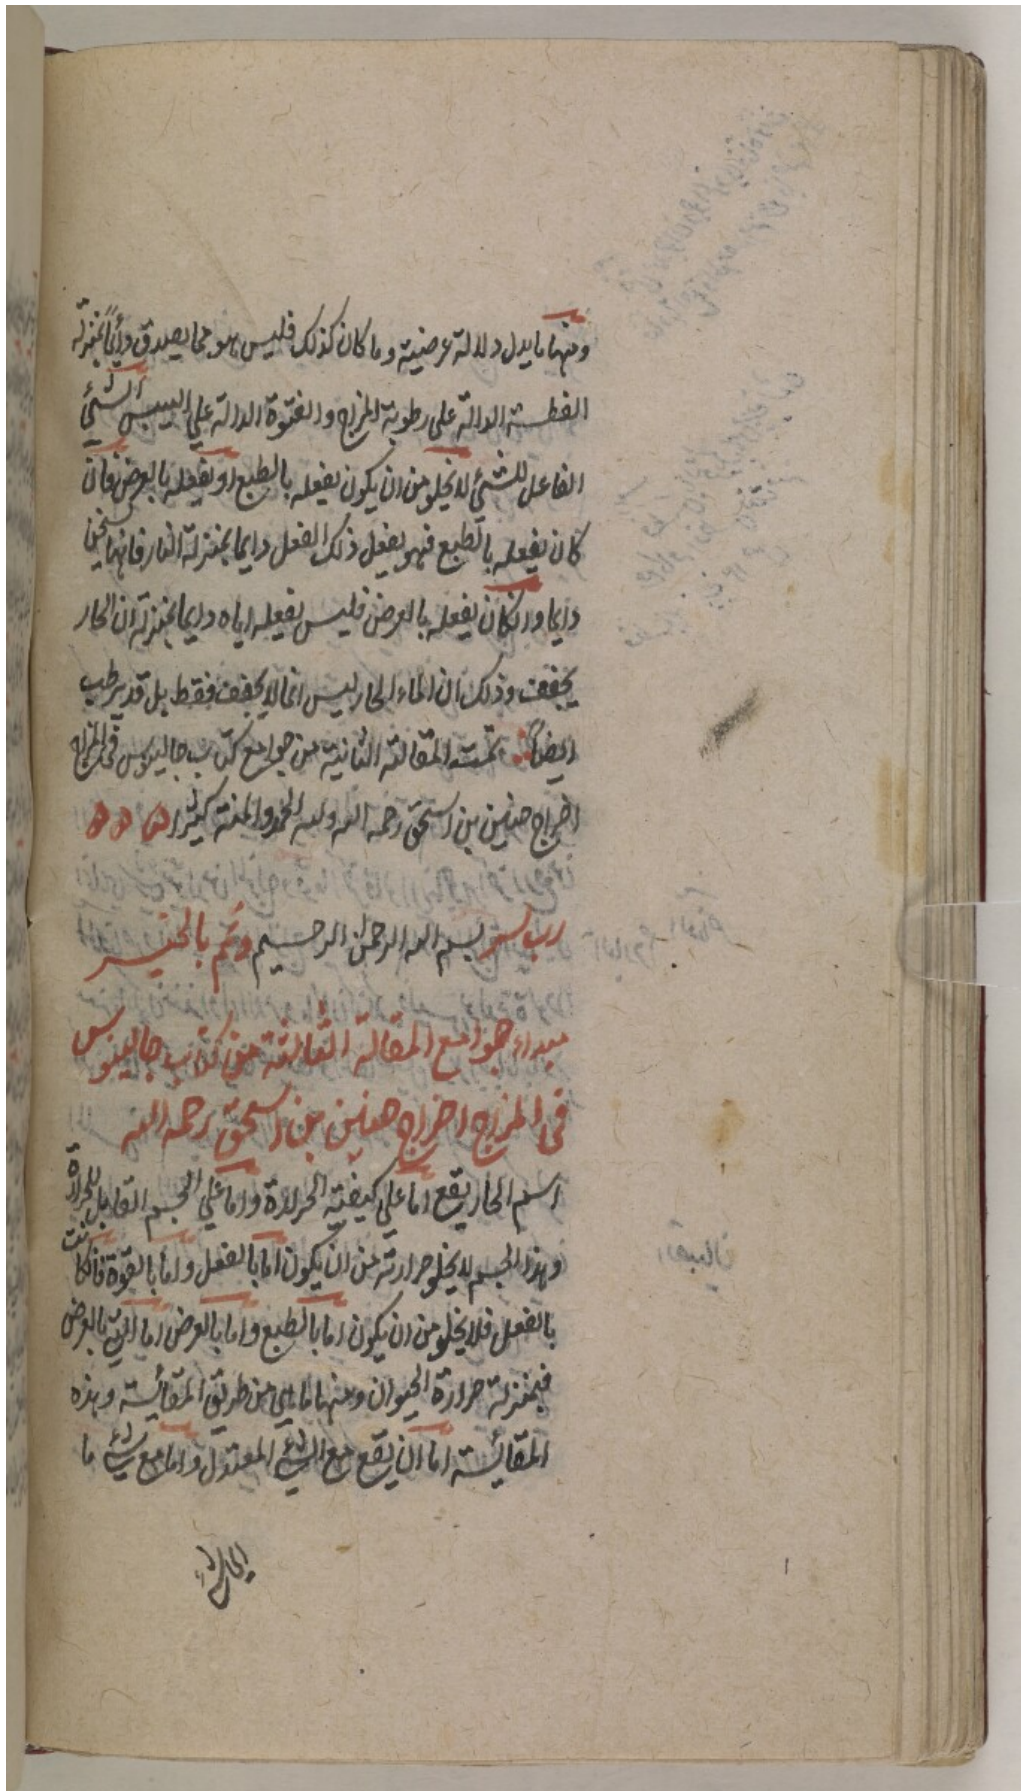 ومنها ما يدل دلالة عرضية وما كان كذلك فليس هو مما يصدق دائماً بمنزلة
الفطسة الدالة على رطوبة المزاج والفتوة الدالة على اليبس الشئ
الفاعل للشئ لا يخلو من ان يكون يفعله بالطبع او يفعله بالعرض فان
كان يفعله بالطبع فهو يفعل ذلك الفعل دايما بمنزلة النار فانها تسخن
دايما وان كان يفعله بالعرض فليس يفعله اياه دايما بمنزلة ان الحار
يجفف وذلك ان الماء الحار ليس انما لا يجفف فقط بل قد يرطب
ايضاً تمت المقالة الثانية من جوامع كتاب جالينوس في المزاج
اخراج حنين بن اسحق رحمه الله ولله الحمد والمنة كثيرا ه ه ه
رب يسر بسم الله الرحمن الرحيم وتمم بالخير
مبداء جوامع المقالة الثالثة من كتاب جالينوس
في المزاج اخراج حنين بن اسحق رحمه الله
اسم الحار يقع اما على كيفية الحرارة واما على الجسم القابل للحرارة
وهذا الجسم لا يخلو حرارته من ان يكون اما بالفعل واما بالقوة فان كانت
بالفعل فلا يخلو من ان يكون اما بالطبع واما بالعرض اما التي بالعرض
فبمنزلة حرارة الحيوان ومنها ما هي من طريق المقائسة وهذه
المقائسة اما ان يقع مع الشئ المعتدل واما مع شئ ما